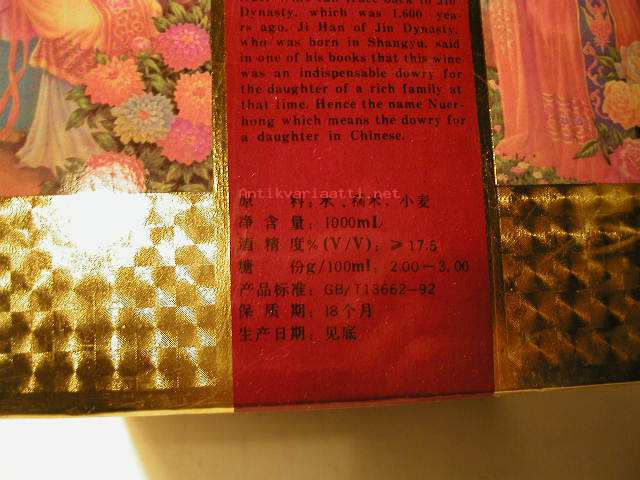 Dynasty, which was 1,600 yea-
rs ago. Ji Han of Jin Dynasty,
who was born in Shangyu, said
in one of his books that this wine
was an indispensable dowry for
the daughter of a rich family at
that time. Hence the name Nuer-
hong which means the dowry for
a daughter in Chinese.
Antikvariaatti.net
原 料: 水、糯米、小麦
净 含 量: 1000mL
酒 精 度%(V/V): ≥17.5
糖 份g/100ml: 2.00—3.00
产品标准: GB/T13662-92
保 质 期: 18个月
生产日期: 见底